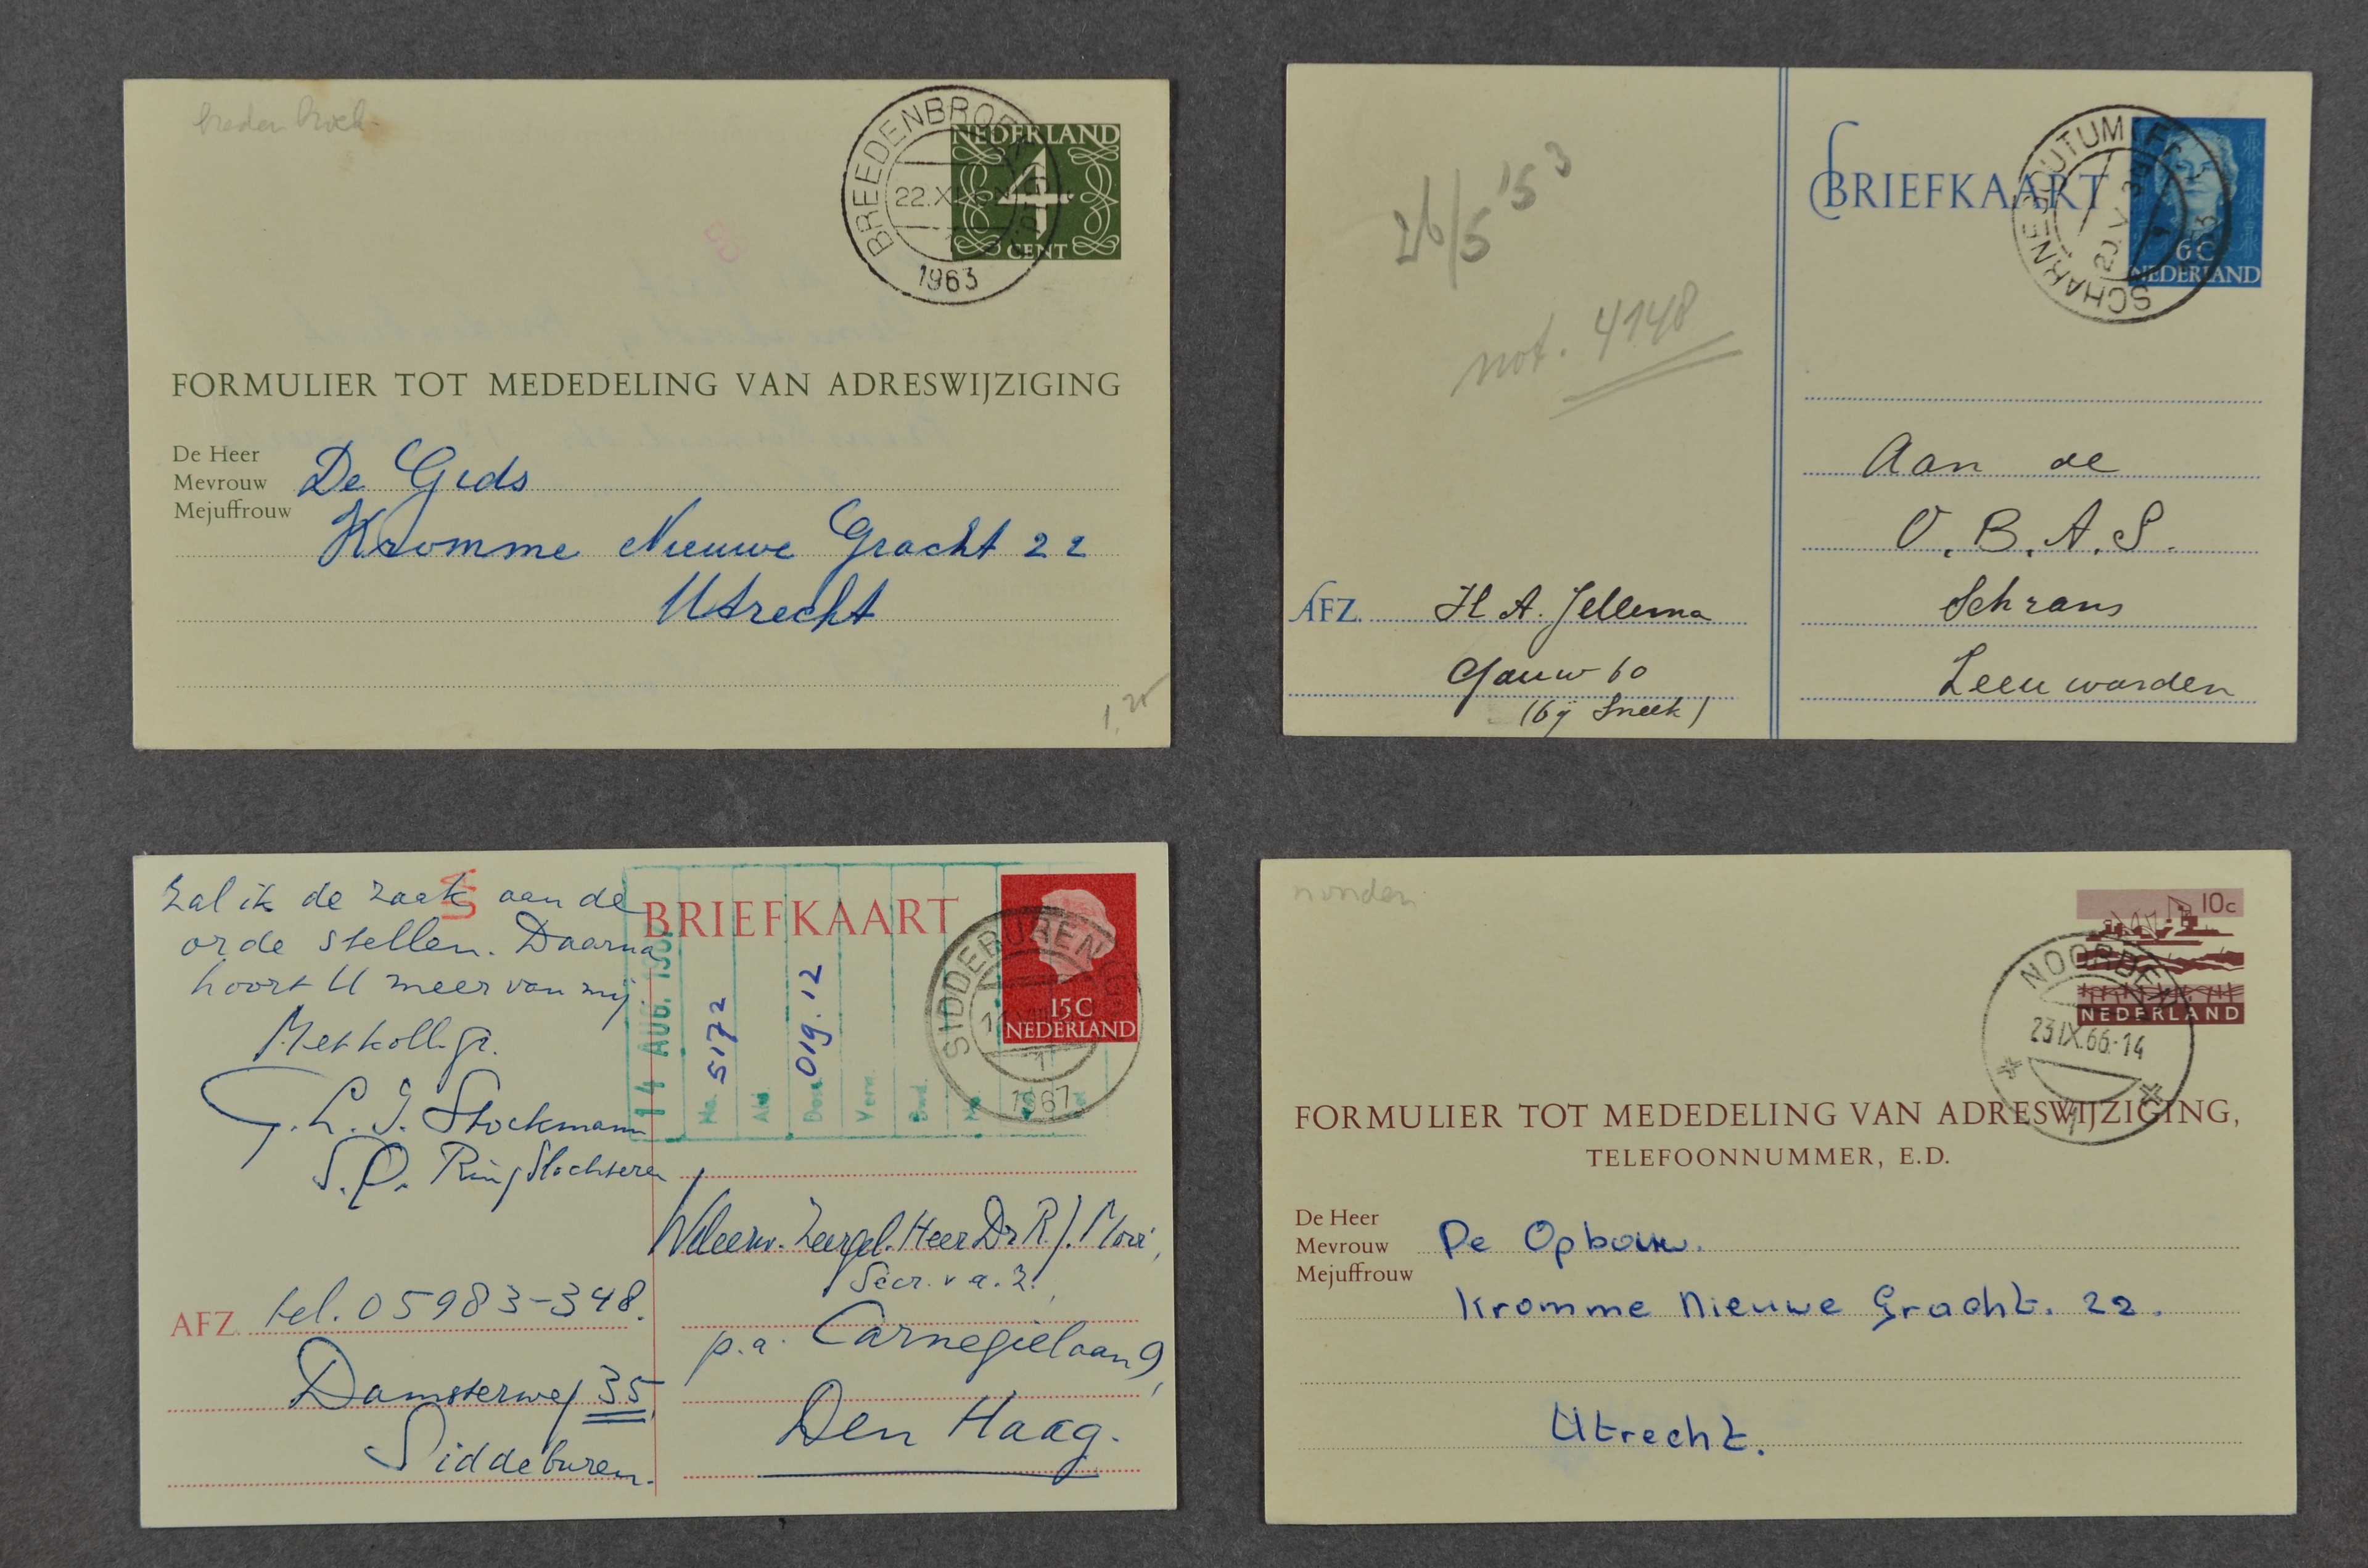 BREEDENBROEK
1963
NEDERLAND
4
CENT
FORMULIER TOT MEDEDELING VAN ADRESWIJZIGING
De Heer
Mevrouw
Mejuffrouw
De Gids
Kromme Nieuwe Gracht 22
Utrecht
26/5 '53
not. 4148
BRIEFKAART
SCHARNEGOUTUM
6 C
NEDERLAND
Aan de
O.B.A.S.
Schrans
Leeuwarden
AFZ. H A. Jellema
Gauw 60
(bij Sneek)
zal ik de zaak aan de
orde stellen. Daarna
hoort U meer van mij
G. L. J. Stockmann
S.O. Ring Slochteren
AFZ. tel. 05983-348.
Damsterweg 35
Siddeburen.
BRIEFKAART
14 AUG.
No. 5172
Doss. 019.12
SIDDEBUREN
1
1967
15 C
NEDERLAND
Weleerw. Zeergel. Heer Dr R.J. Mooi,
Secr. v a. Z.,
p.a. Carnegielaan 9,
Den Haag.
10c
NEDERLAND
NOORDEN
23 IX.66.-14
FORMULIER TOT MEDEDELING VAN ADRESWIJZIGING,
TELEFOONNUMMER, E.D.
De Heer
Mevrouw
Mejuffrouw
De Opbouw.
Kromme Nieuwe Gracht. 22.
Utrecht.